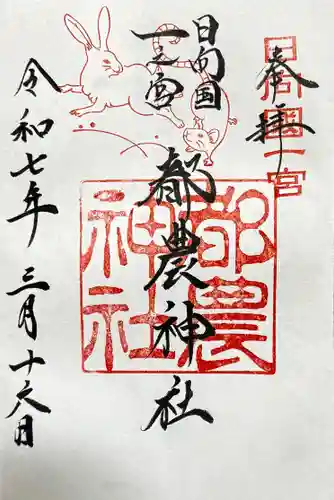 奉拝
日向国一宮
日向国
一之宮
都農神社
都農
神社
令和七年 三月十六日